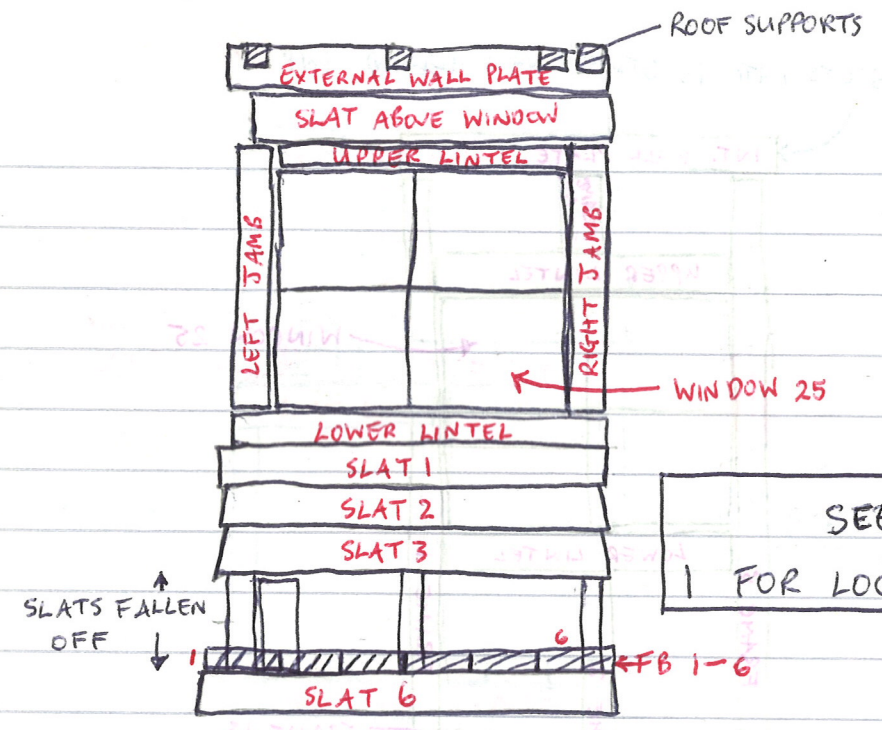 ROOF SUPPORTS
EXTERNAL WALL PLATE
SLAT ABOVE WINDOW
UPPER LINTEL
LEFT JAMB
RIGHT JAMB
WINDOW 25
LOWER LINTEL
SLAT 1
SLAT 2
SLAT 3
SEE
1 FOR LOC
SLATS FALLEN
OFF
1
6
FB 1-6
SLAT 6